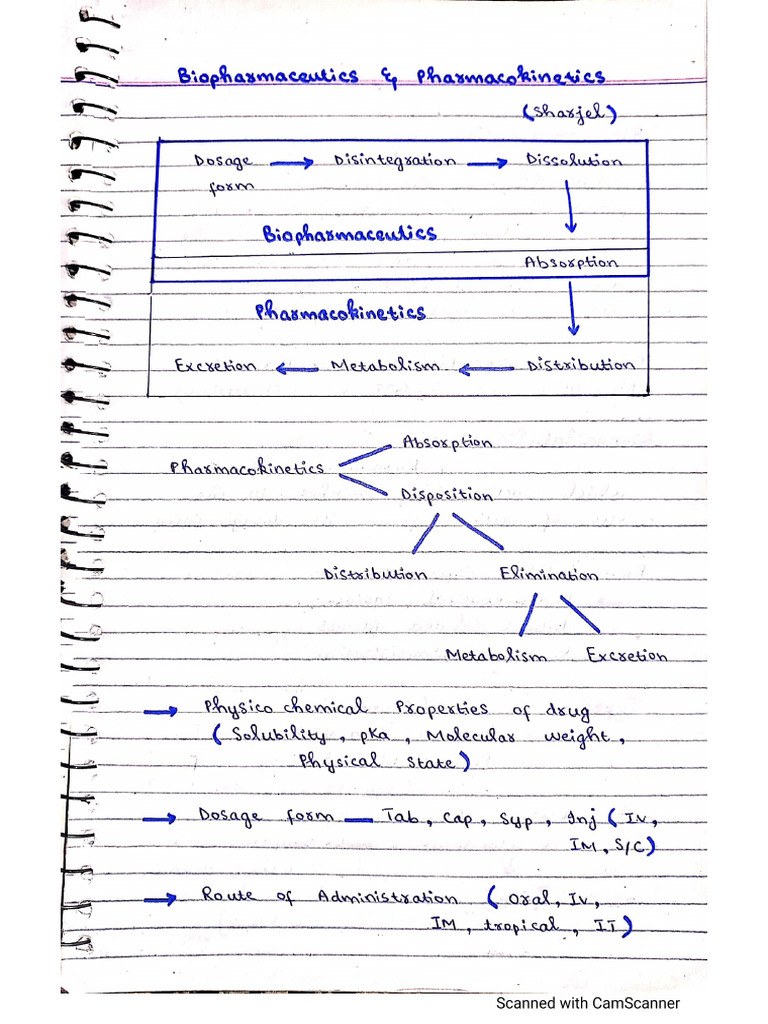 Biopharmaceutics & Pharmacokinetics
(Sharjel)
Dosage → Disintegration → Dissolution
form
Biopharmaceutics
Absorption
Pharmacokinetics
Excretion ← Metabolism ← Distribution
Absorption
Pharmacokinetics
Disposition
Distribution Elimination
Metabolism Excretion
→ Physico chemical Properties of drug
(Solubility, pKa, Molecular weight,
Physical State)
→ Dosage form — Tab, Cap, Syp, Inj (IV,
IM, S/C)
→ Route of Administration (Oral, IV,
IM, tropical, IT)
Scanned with CamScanner